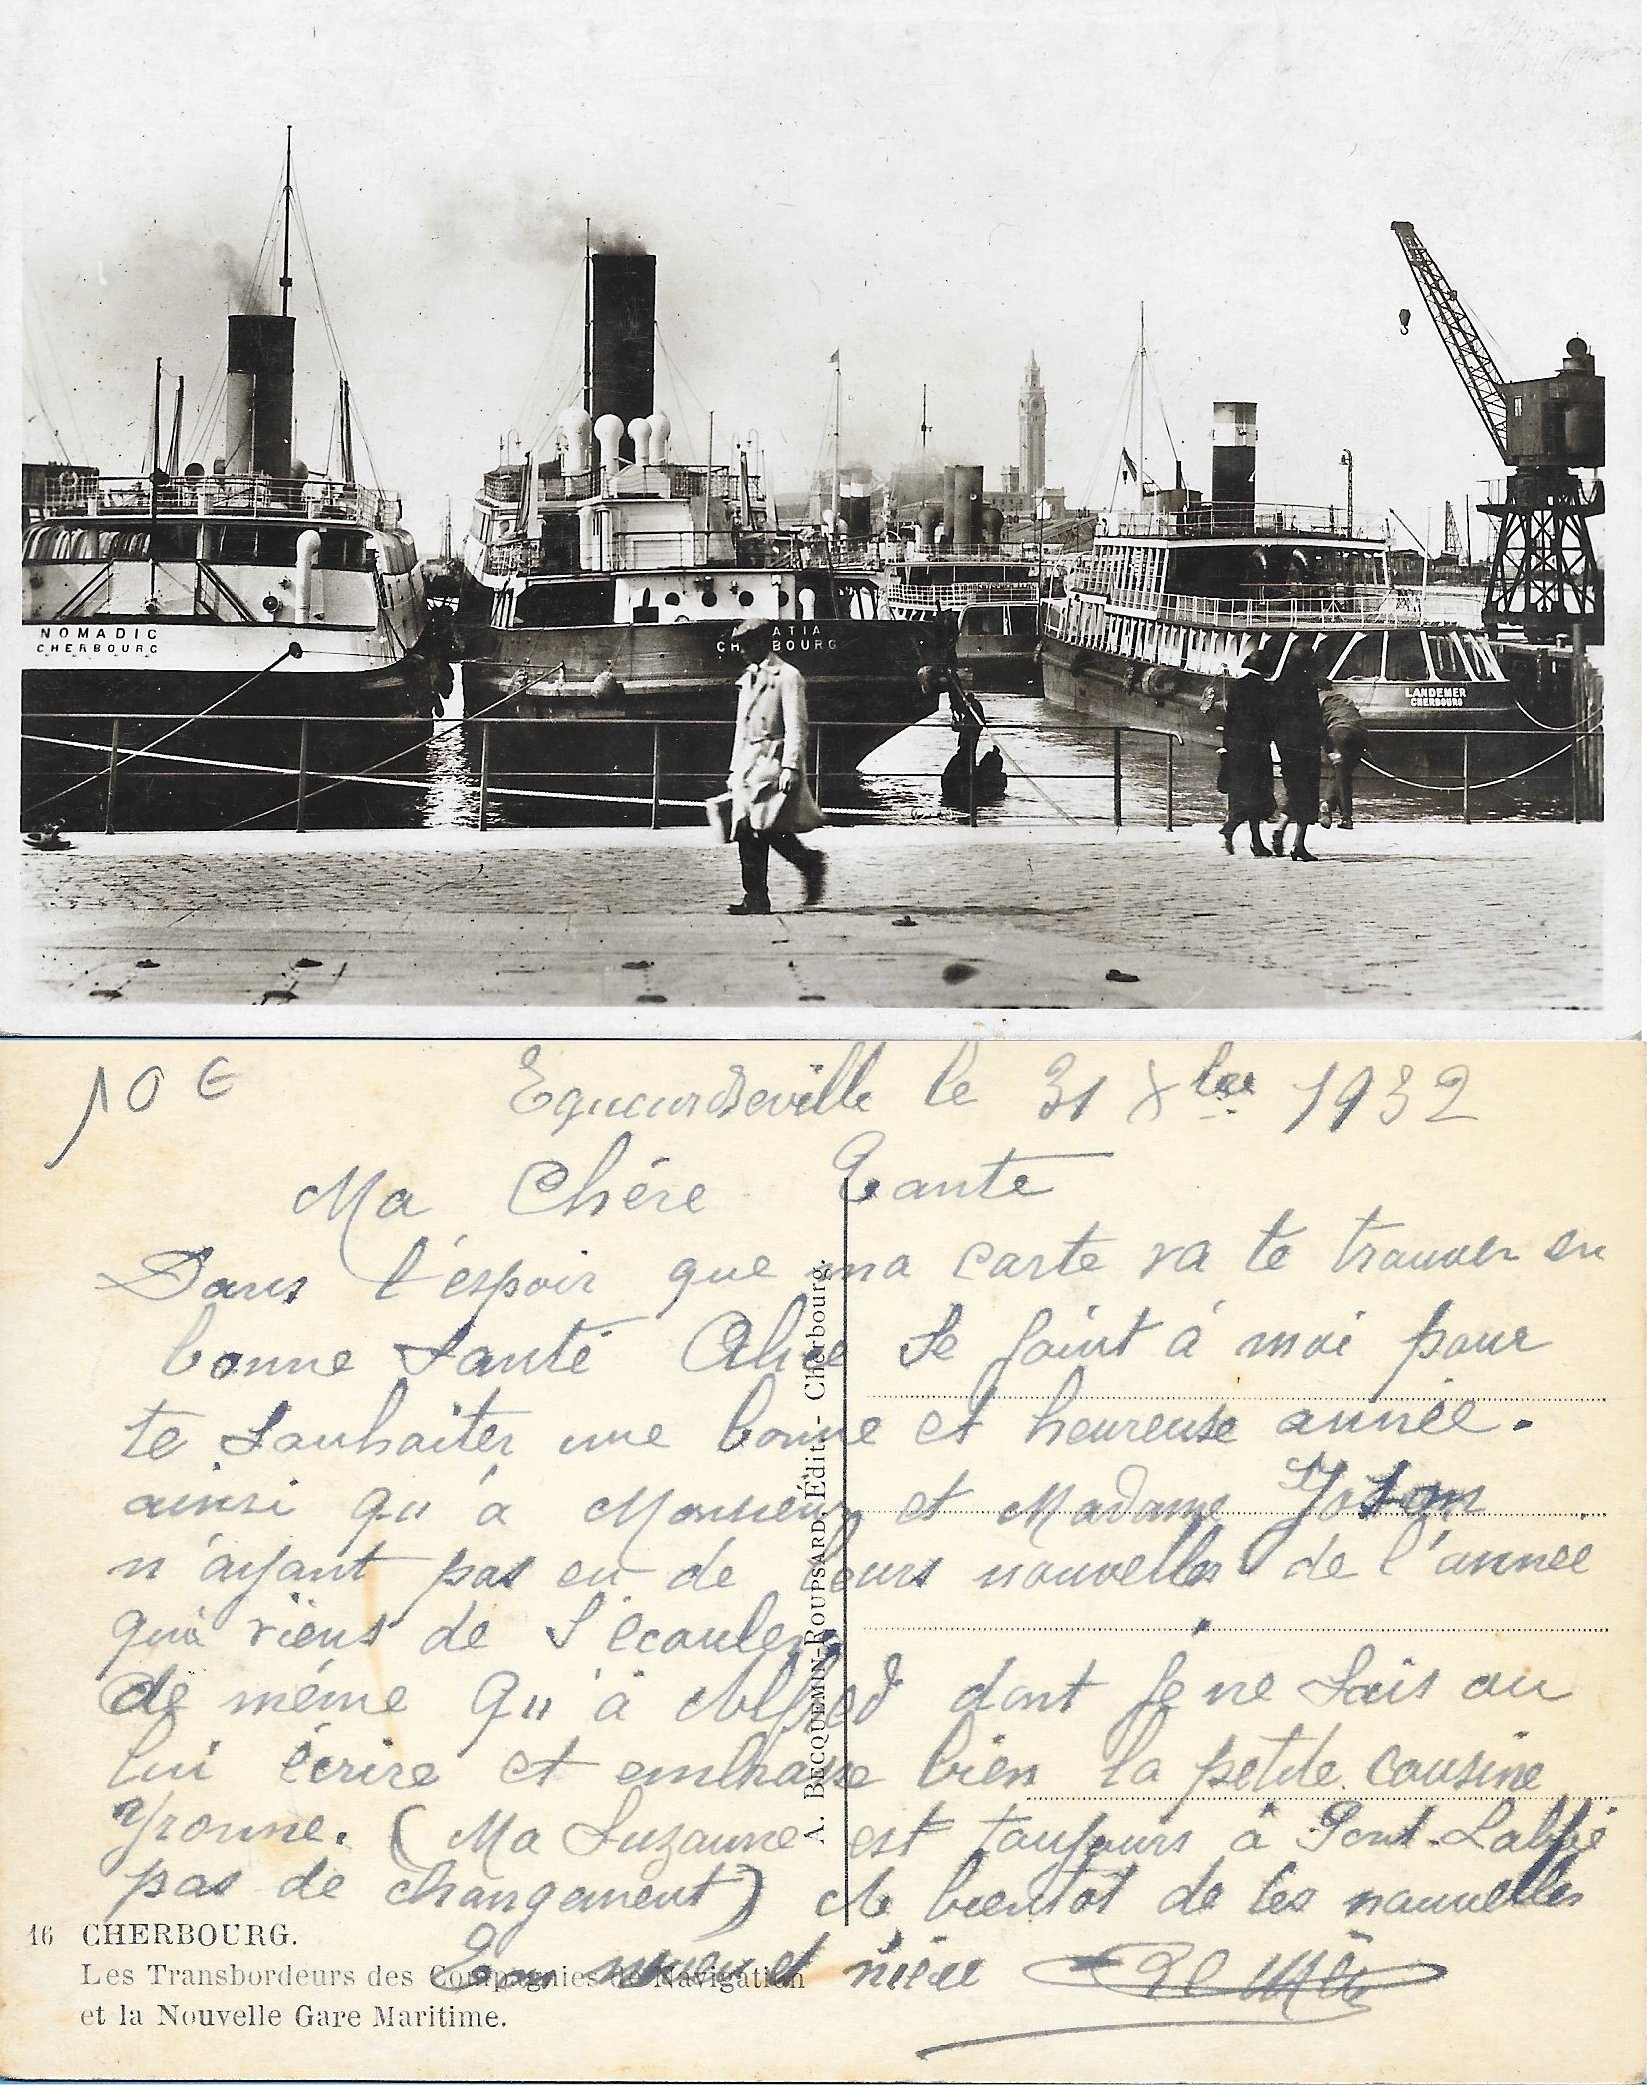 NOMADIC
CHERBOURG
ATIA
CH BOURG
LANDEMER
CHERBOURG
10 €
Equeurdreville le 31 Xbre 1932
Ma Chére Tante
Dans l'éspoir que ma carte va te trouver en
bonne Santé Alice Se Joint á moi pour
te Souhaiter une bonne et heureuse année.
ainsi qu'à Monsieur et Madame
n'ayant pas eu de leurs nouvelles de l'année
qui viens de S'écouler
de méme qu'à Alfred dont Je ne Sais ou
lui écrire et embrasse bien la petite cousine
Yvonne. (Ma Suzanne est toujours à Pont-Labbé
pas de changement) A bientot de tes nouvelles
Ton neveu et niéce
A. BECQUEMIN-ROUPSARD, Édit. - Cherbourg.
16 CHERBOURG.
Les Transbordeurs des Compagnies de Navigation
et la Nouvelle Gare Maritime.